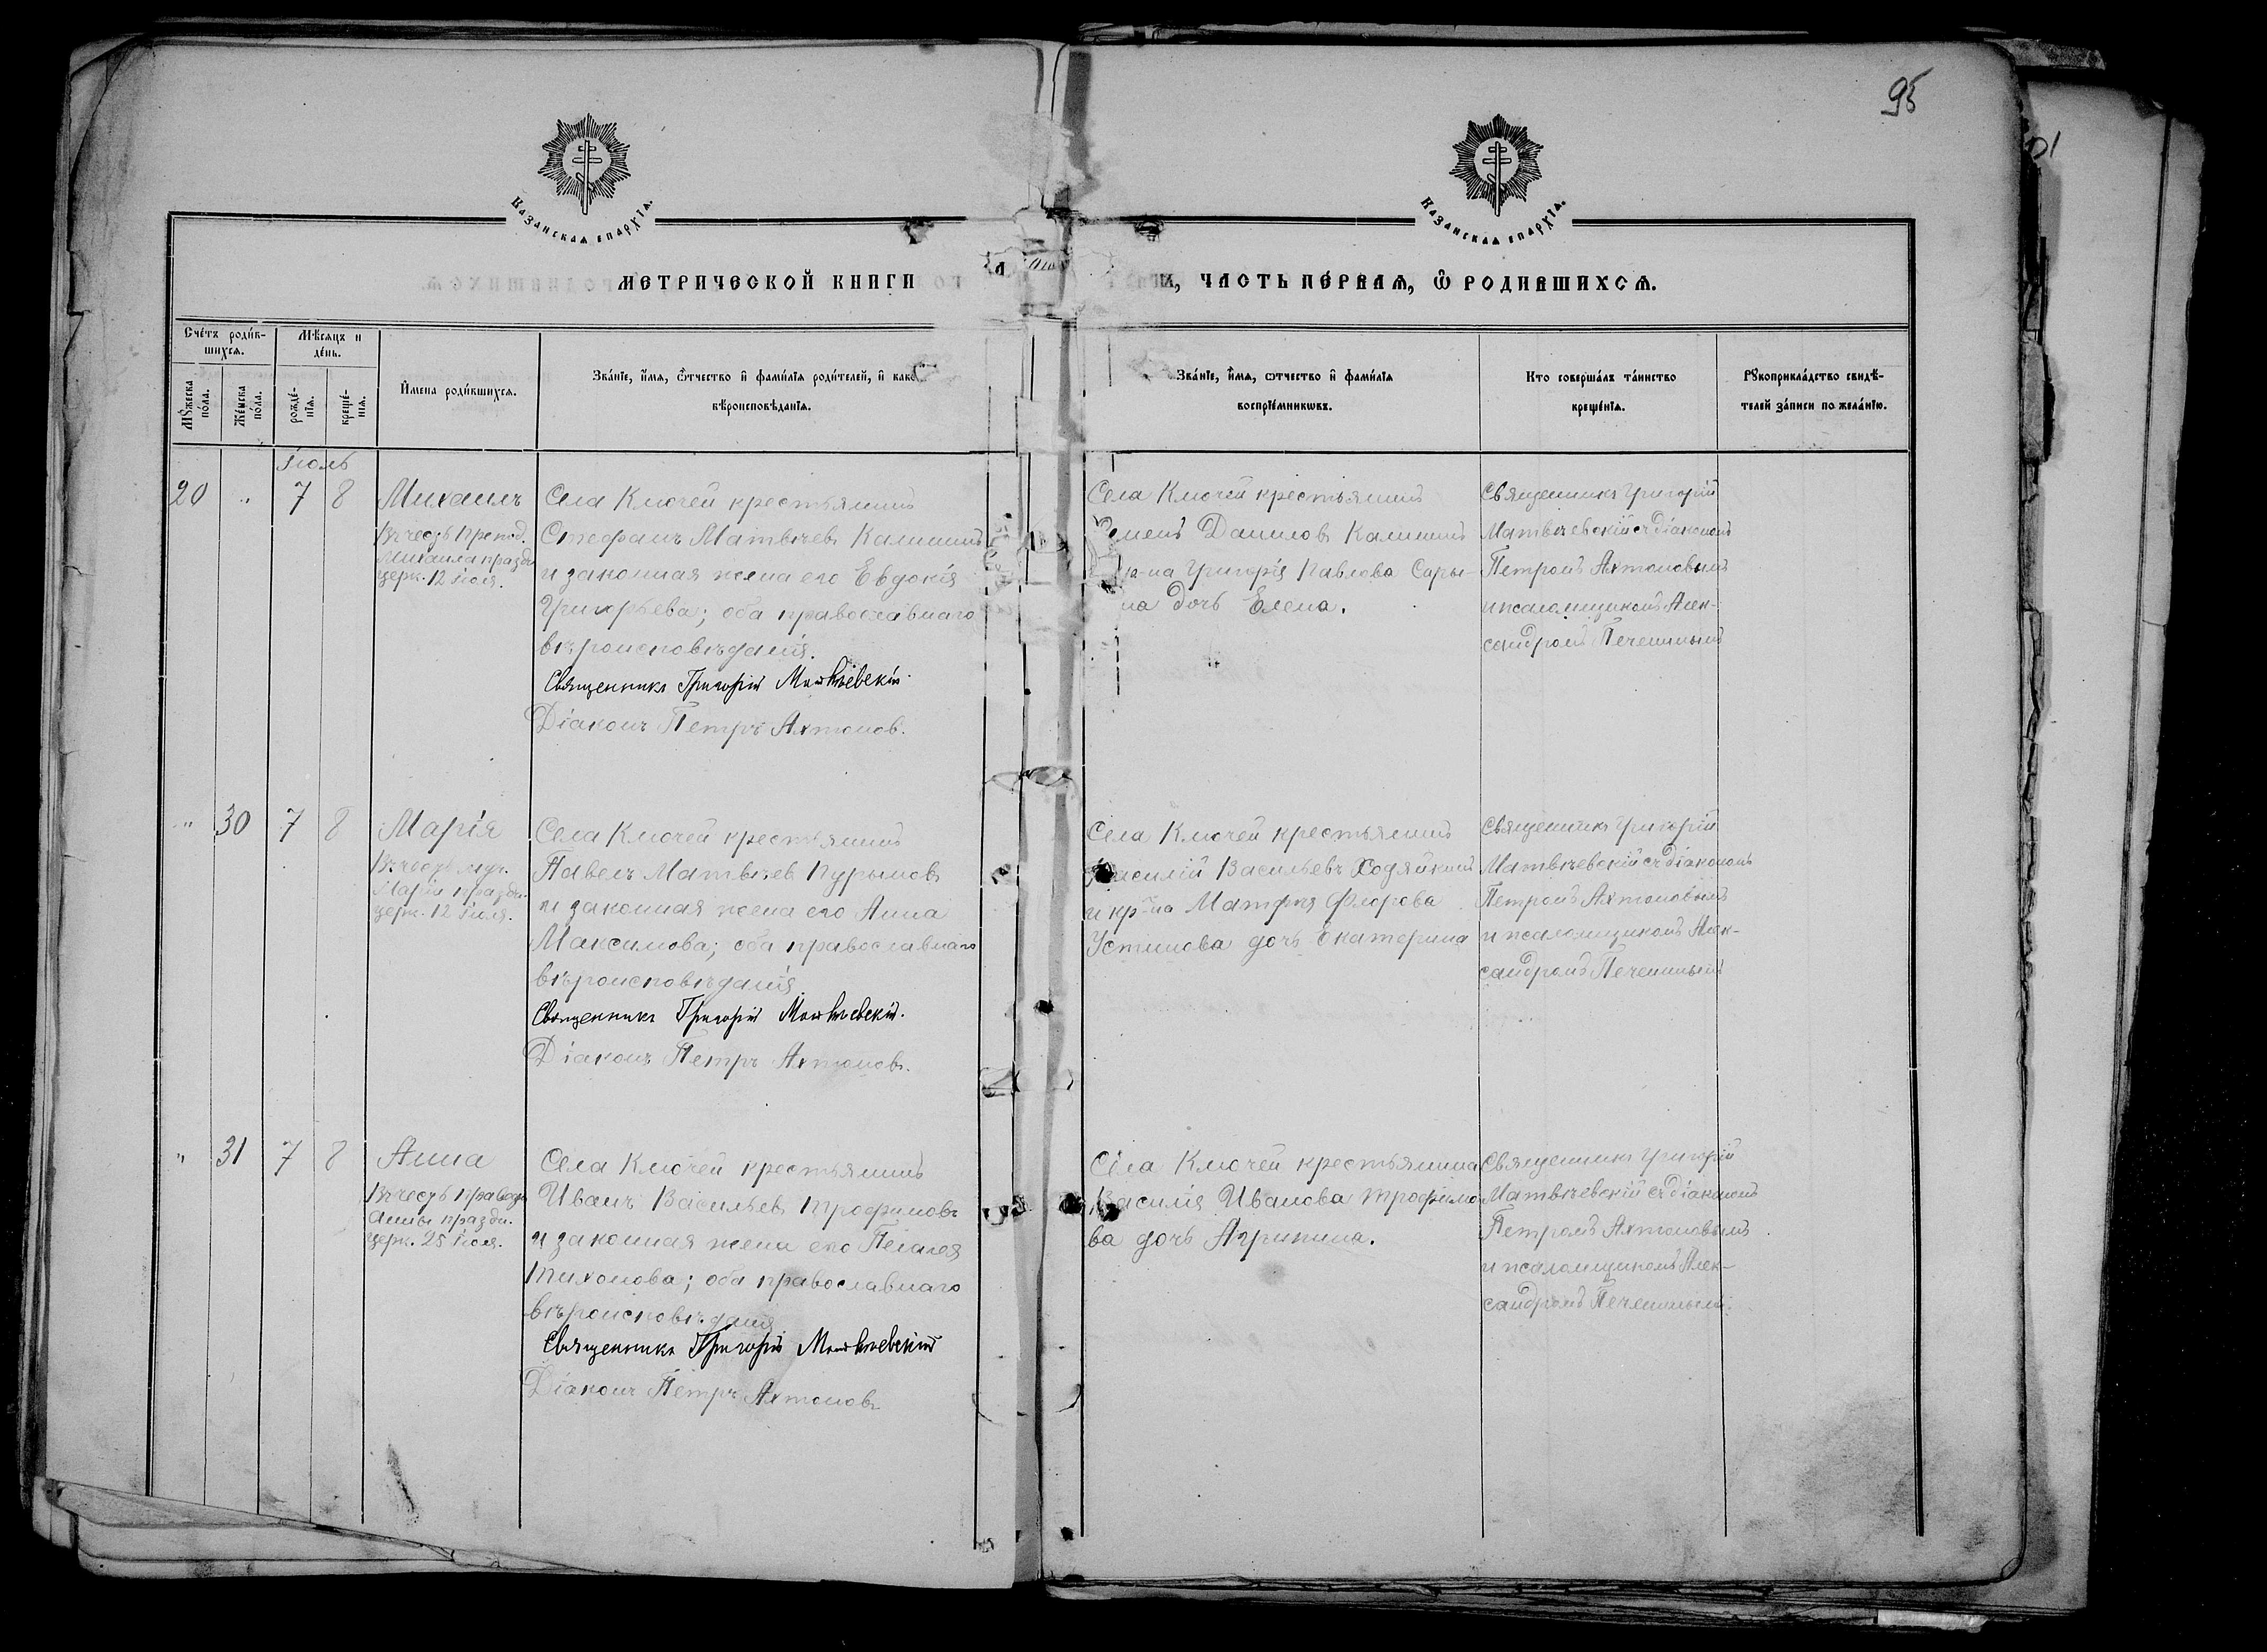 95
Казанская епархїя.
Казанская епархїя.
МЕТРИЧЕСКОЙ КНИГИ
ЧАСТЬ ПЕРВАЯ, Ѿ РОДИВШИХСЯ.
Счетъ родив-
шихся.
Мѣсяцъ и
день.
Мꙋжеска
пола.
Женска
пола.
рожде-
нїя.
креще-
нїя.
Имена родившихся.
Званїе, имя, ѿтчество и фамилїя родителей, и како
вѣроисповѣданїя.
Званїе, имя, ѿтчество и фамилїя
воспрїемникѡвъ.
Кто совершалъ таинство
крещенїя.
Рꙋкоприкладство свидѣ-
телей записи по желанїю.
Іюль
20 „ 7 8 Михаилъ
Въ честь Препод.
Михаила праздн.
церк. 12 Іюля.
Села Ключей крестьянинъ
Стефанъ Матвѣевъ Калининъ
и законная жена его Евдокія
Григорьева; оба православнаго
вѣроисповѣданія.
Священникъ Григорій Матвѣевскій.
Діаконъ Петръ Ахтоновъ.
Села Ключей крестьянинъ
Даниловъ Калининъ
кр-на Григорія Павлова Сары-
на дочь Елена.
Священникъ Григорій
Матвѣевскій съ діакономъ
Петромъ Ахтоновымъ
и псаломщикомъ Алек-
сандромъ Печенинымъ
„ 30 7 8 Марія
Въ честь муч.
Маріи праздн.
церк. 12 Іюля.
Села Ключей крестьянинъ
Павелъ Матвѣевъ Пурыновъ
и законная жена его Анна
Максимова; оба православнаго
вѣроисповѣданія
Священникъ Григорій Матвѣевскій.
Діаконъ Петръ Ахтоновъ.
Села Ключей крестьянинъ
Василій Васильевъ Ходяйкинъ
и кр-на Матфія Флорова
Устинова дочь Екатерина
Священникъ Григорій
Матвѣевскій съ діакономъ
Петромъ Ахтоновымъ
и псаломщикомъ Алек-
сандромъ Печенинымъ
„ 31 7 8 Анна
Въ честь Правед.
Анны праздн.
церк. 25 Іюля.
Села Ключей крестьянинъ
Иванъ Васильевъ Трофимовъ
и законная жена его Пелагея
Тихонова; оба православнаго
вѣроисповѣданія
Священникъ Григорій Матвѣевскій
Діаконъ Петръ Ахтоновъ
Села Ключей крестьянина
Василія Иванова Трофимо-
ва дочь Агрипина.
Священникъ Григорій
Матвѣевскій съ діакономъ
Петромъ Ахтоновымъ
и псаломщикомъ Алек-
сандромъ Печенинымъ.